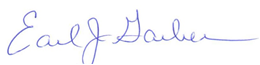 Earl J Garber